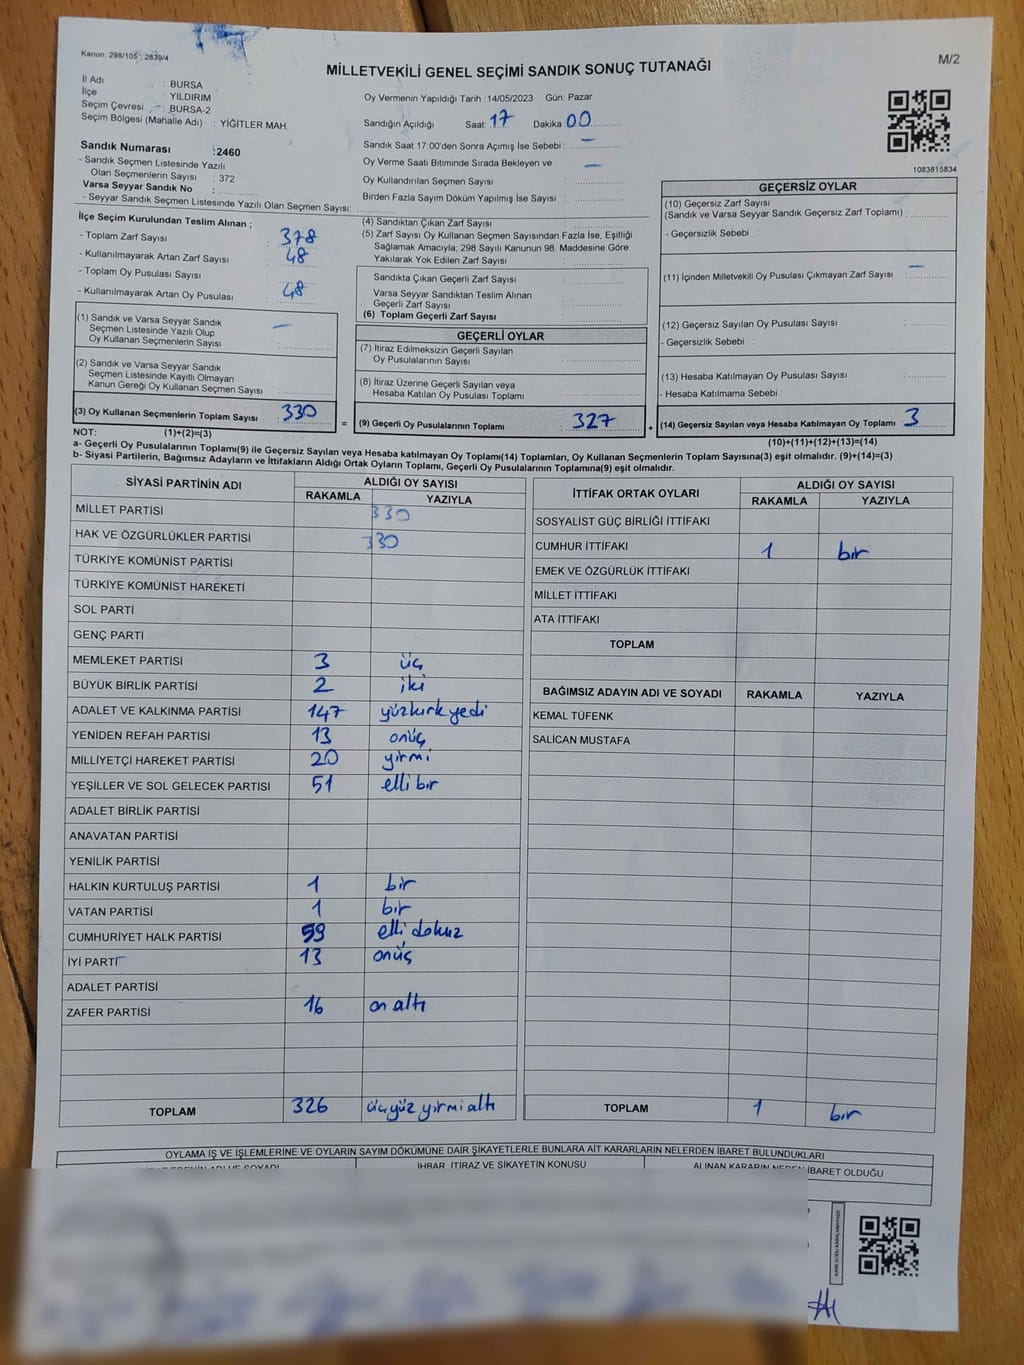 Kanun: 298/105 ; 2839/4
M/2
MİLLETVEKİLİ GENEL SEÇİMİ SANDIK SONUÇ TUTANAĞI
İl Adı : BURSA
İlçe : YILDIRIM
Seçim Çevresi : BURSA-2
Seçim Bölgesi (Mahalle Adı) : YİĞİTLER MAH.
Oy Vermenin Yapıldığı Tarih :14/05/2023 Gün: Pazar
Sandığın Açıldığı Saat: 17 Dakika 00
Sandık Saat 17:00'den Sonra Açımış İse Sebebi : —
Oy Verme Saati Bitiminde Sırada Bekleyen ve —
Oy Kullandırılan Seçmen Sayısı :
Birden Fazla Sayım Döküm Yapılmış İse Sayısı :
1083815834
Sandık Numarası :2460
- Sandık Seçmen Listesinde Yazılı
Olan Seçmenlerin Sayısı : 372
Varsa Seyyar Sandık No :
- Seyyar Sandık Seçmen Listesinde Yazılı Olan Seçmen Sayısı:
İlçe Seçim Kurulundan Teslim Alınan ;
- Toplam Zarf Sayısı : 378
- Kullanılmayarak Artan Zarf Sayısı : 48
- Toplam Oy Pusulası Sayısı :
- Kullanılmayarak Artan Oy Pusulası : 48
(1) Sandık ve Varsa Seyyar Sandık
Seçmen Listesinde Yazılı Olup
Oy Kullanan Seçmenlerin Sayısı : —
(2) Sandık ve Varsa Seyyar Sandık
Seçmen Listesinde Kayıtlı Olmayan
Kanun Gereği Oy Kullanan Seçmen Sayısı :
(3) Oy Kullanan Seçmenlerin Toplam Sayısı : 330 =
(1)+(2)=(3)
(4) Sandıktan Çıkan Zarf Sayısı :
(5) Zarf Sayısı Oy Kullanan Seçmen Sayısından Fazla İse, Eşitliği
Sağlamak Amacıyla; 298 Sayılı Kanunun 98. Maddesine Göre
Yakılarak Yok Edilen Zarf Sayısı :
Sandıkta Çıkan Geçerli Zarf Sayısı :
Varsa Seyyar Sandıktan Teslim Alınan
Geçerli Zarf Sayısı :
(6) Toplam Geçerli Zarf Sayısı :
GEÇERLİ OYLAR
(7) İtiraz Edilmeksizin Geçerli Sayılan
Oy Pusulalarının Sayısı :
(8) İtiraz Üzerine Geçerli Sayılan veya
Hesaba Katılan Oy Pusulaları Toplamı :
(9) Geçerli Oy Pusulalarının Toplamı : 327 +
GEÇERSİZ OYLAR
(10) Geçersiz Zarf Sayısı
(Sandık ve Varsa Seyyar Sandık Geçersiz Zarf Toplamı) :
- Geçersizlik Sebebi :
(11) İçinden Milletvekili Oy Pusulası Çıkmayan Zarf Sayısı : —
(12) Geçersiz Sayılan Oy Pusulası Sayısı :
- Geçersizlik Sebebi :
(13) Hesaba Katılmayan Oy Pusulası Sayısı :
- Hesaba Katılmama Sebebi :
(14) Geçersiz Sayılan veya Hesaba Katılmayan Oy Toplamı : 3
(10)+(11)+(12)+(13)=(14)
NOT:
a- Geçerli Oy Pusulalarının Toplamı(9) ile Geçersiz Sayılan veya Hesaba katılmayan Oy Toplamı(14) Toplamları, Oy Kullanan Seçmenlerin Toplam Sayısına(3) eşit olmalıdır. (9)+(14)=(3)
b- Siyasi Partilerin, Bağımsız Adayların ve İttifakların Aldığı Ortak Oyların Toplamı, Geçerli Oy Pusulalarının Toplamına(9) eşit olmalıdır.
SİYASİ PARTİNİN ADI ALDIĞI OY SAYISI
RAKAMLA YAZIYLA
MİLLET PARTİSİ 330
HAK VE ÖZGÜRLÜKLER PARTİSİ 330
TÜRKİYE KOMÜNİST PARTİSİ
TÜRKİYE KOMÜNİST HAREKETİ
SOL PARTİ
GENÇ PARTİ
MEMLEKET PARTİSİ 3 üç
BÜYÜK BİRLİK PARTİSİ 2 iki
ADALET VE KALKINMA PARTİSİ 147 yüzkırkyedi
YENİDEN REFAH PARTİSİ 13 onüç
MİLLİYETÇİ HAREKET PARTİSİ 20 yirmi
YEŞİLLER VE SOL GELECEK PARTİSİ 51 elli bir
ADALET BİRLİK PARTİSİ
ANAVATAN PARTİSİ
YENİLİK PARTİSİ
HALKIN KURTULUŞ PARTİSİ 1 bir
VATAN PARTİSİ 1 bır
CUMHURİYET HALK PARTİSİ 59 elli dokuz
İYİ PARTİ 13 onüç
ADALET PARTİSİ
ZAFER PARTİSİ 16 on altı
TOPLAM 326 üçyüz yırmialtı
İTTİFAK ORTAK OYLARI ALDIĞI OY SAYISI
RAKAMLA YAZIYLA
SOSYALİST GÜÇ BİRLİĞİ İTTİFAKI
CUMHUR İTTİFAKI 1 bır
EMEK VE ÖZGÜRLÜK İTTİFAKI
MİLLET İTTİFAKI
ATA İTTİFAKI
TOPLAM
BAĞIMSIZ ADAYIN ADI VE SOYADI RAKAMLA YAZIYLA
KEMAL TÜFENK
SALİCAN MUSTAFA
TOPLAM 1 bır
OYLAMA İŞ VE İŞLEMLERİNE VE OYLARIN SAYIM DÖKÜMÜNE DAİR ŞİKAYETLERLE BUNLARA AİT KARARLARIN NELERDEN İBARET BULUNDUKLARI
İHBAR, İTİRAZ VE ŞİKAYETİN KONUSU
ALINAN KARARIN NEDEN İBARET OLDUĞU
KARE KODU KARALAMAYINIZ!